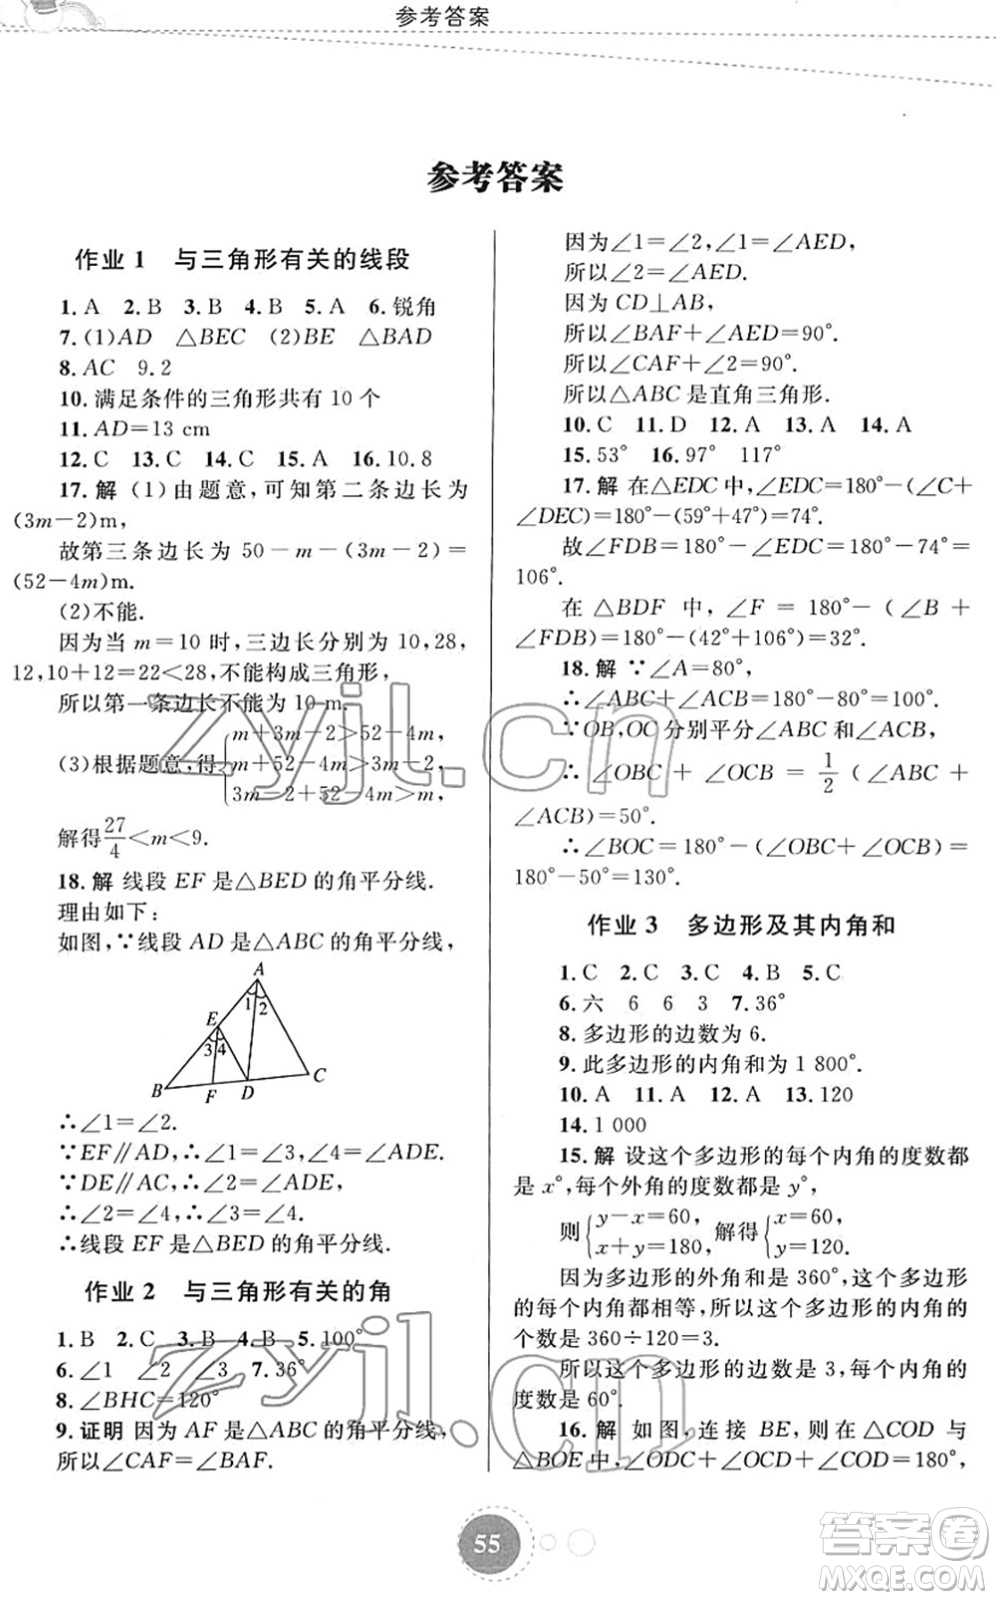 参考答案
参考答案
作业 1 与三角形有关的线段
1. A 2. B 3. B 4. B 5. A 6. 锐角
7. (1)AD △BEC (2)BE △BAD
8. AC 9. 2
10. 满足条件的三角形共有 10 个
11. AD=13 cm
12. C 13. C 14. C 15. A 16. 10.8
17. 解 (1)由题意,可知第二条边长为
(3m-2)m,
故第三条边长为 50-m-(3m-2)=
(52-4m)m.
(2)不能.
因为当 m=10 时,三边长分别为 10,28,
12,10+12=22<28,不能构成三角形,
所以第一条边长不能为 10 m.
m+3m-2>52-4m,
(3)根据题意,得{m+52-4m>3m-2,
3m-2+52-4m>m,
解得27/4<m<9.
18. 解 线段 EF 是△BED 的角平分线.
理由如下:
如图,∵线段 AD 是△ABC 的角平分线,
A
1 2
E
3 4
B F D C
∴∠1=∠2.
∵EF∥AD,∴∠1=∠3,∠4=∠ADE.
∵DE∥AC,∴∠2=∠ADE,
∴∠2=∠4,∴∠3=∠4.
∴线段 EF 是△BED 的角平分线.
作业 2 与三角形有关的角
1. B 2. C 3. B 4. B 5. 100°
6. ∠1 ∠2 ∠3 7. 36°
8. ∠BHC=120°
9. 证明 因为 AF 是△ABC 的角平分线,
所以∠CAF=∠BAF.
因为∠1=∠2,∠1=∠AED,
所以∠2=∠AED.
因为 CD⊥AB,
所以∠BAF+∠AED=90°.
所以∠CAF+∠2=90°.
所以△ABC 是直角三角形.
10. C 11. D 12. A 13. A 14. A
15. 53° 16. 97° 117°
17. 解 在△EDC 中,∠EDC=180°-(∠C+
∠DEC)=180°-(59°+47°)=74°.
故∠FDB=180°-∠EDC=180°-74°=
106°.
在 △BDF 中, ∠F = 180°-(∠B+
∠FDB)=180°-(42°+106°)=32°.
18. 解 ∵∠A=80°,
∴∠ABC+∠ACB=180°-80°=100°.
∵OB,OC 分别平分∠ABC 和∠ACB,
∴ ∠OBC + ∠OCB = 1/2 (∠ABC +
∠ACB)=50°.
∴∠BOC=180°-(∠OBC+∠OCB)=
180°-50°=130°.
作业 3 多边形及其内角和
1. C 2. C 3. C 4. B 5. C
6. 六 6 6 3 7. 36°
8. 多边形的边数为 6.
9. 此多边形的内角和为 1 800°.
10. A 11. A 12. A 13. 120
14. 1 000
15. 解 设这个多边形的每个内角的度数都
是 x°,每个外角的度数都是 y°,
则{y-x=60, 解得{x=60,
x+y=180, y=120.
因为多边形的外角和是 360°,这个多边形
的每个内角都相等,所以这个多边形的内角的
个数是 360÷120=3.
所以这个多边形的边数是 3,每个内角的
度数是 60°.
16. 解 如图,连接 BE,则在△COD 与
△BOE 中,∠ODC+∠OCD+∠COD=180°,
55
zyjl.cn
zyjl.cn
答案卷
MXQE.COM